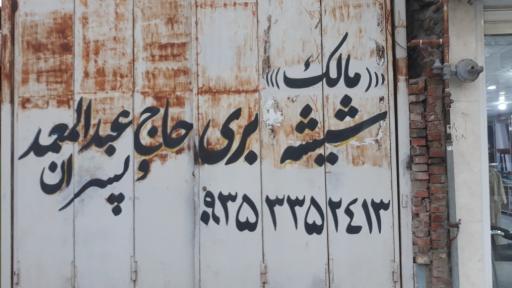 (((مالک)))
شیشه بری حاج عبدالمحمد
و پسران
۰۹۳۵ ۳۳۵۲٤۱۳